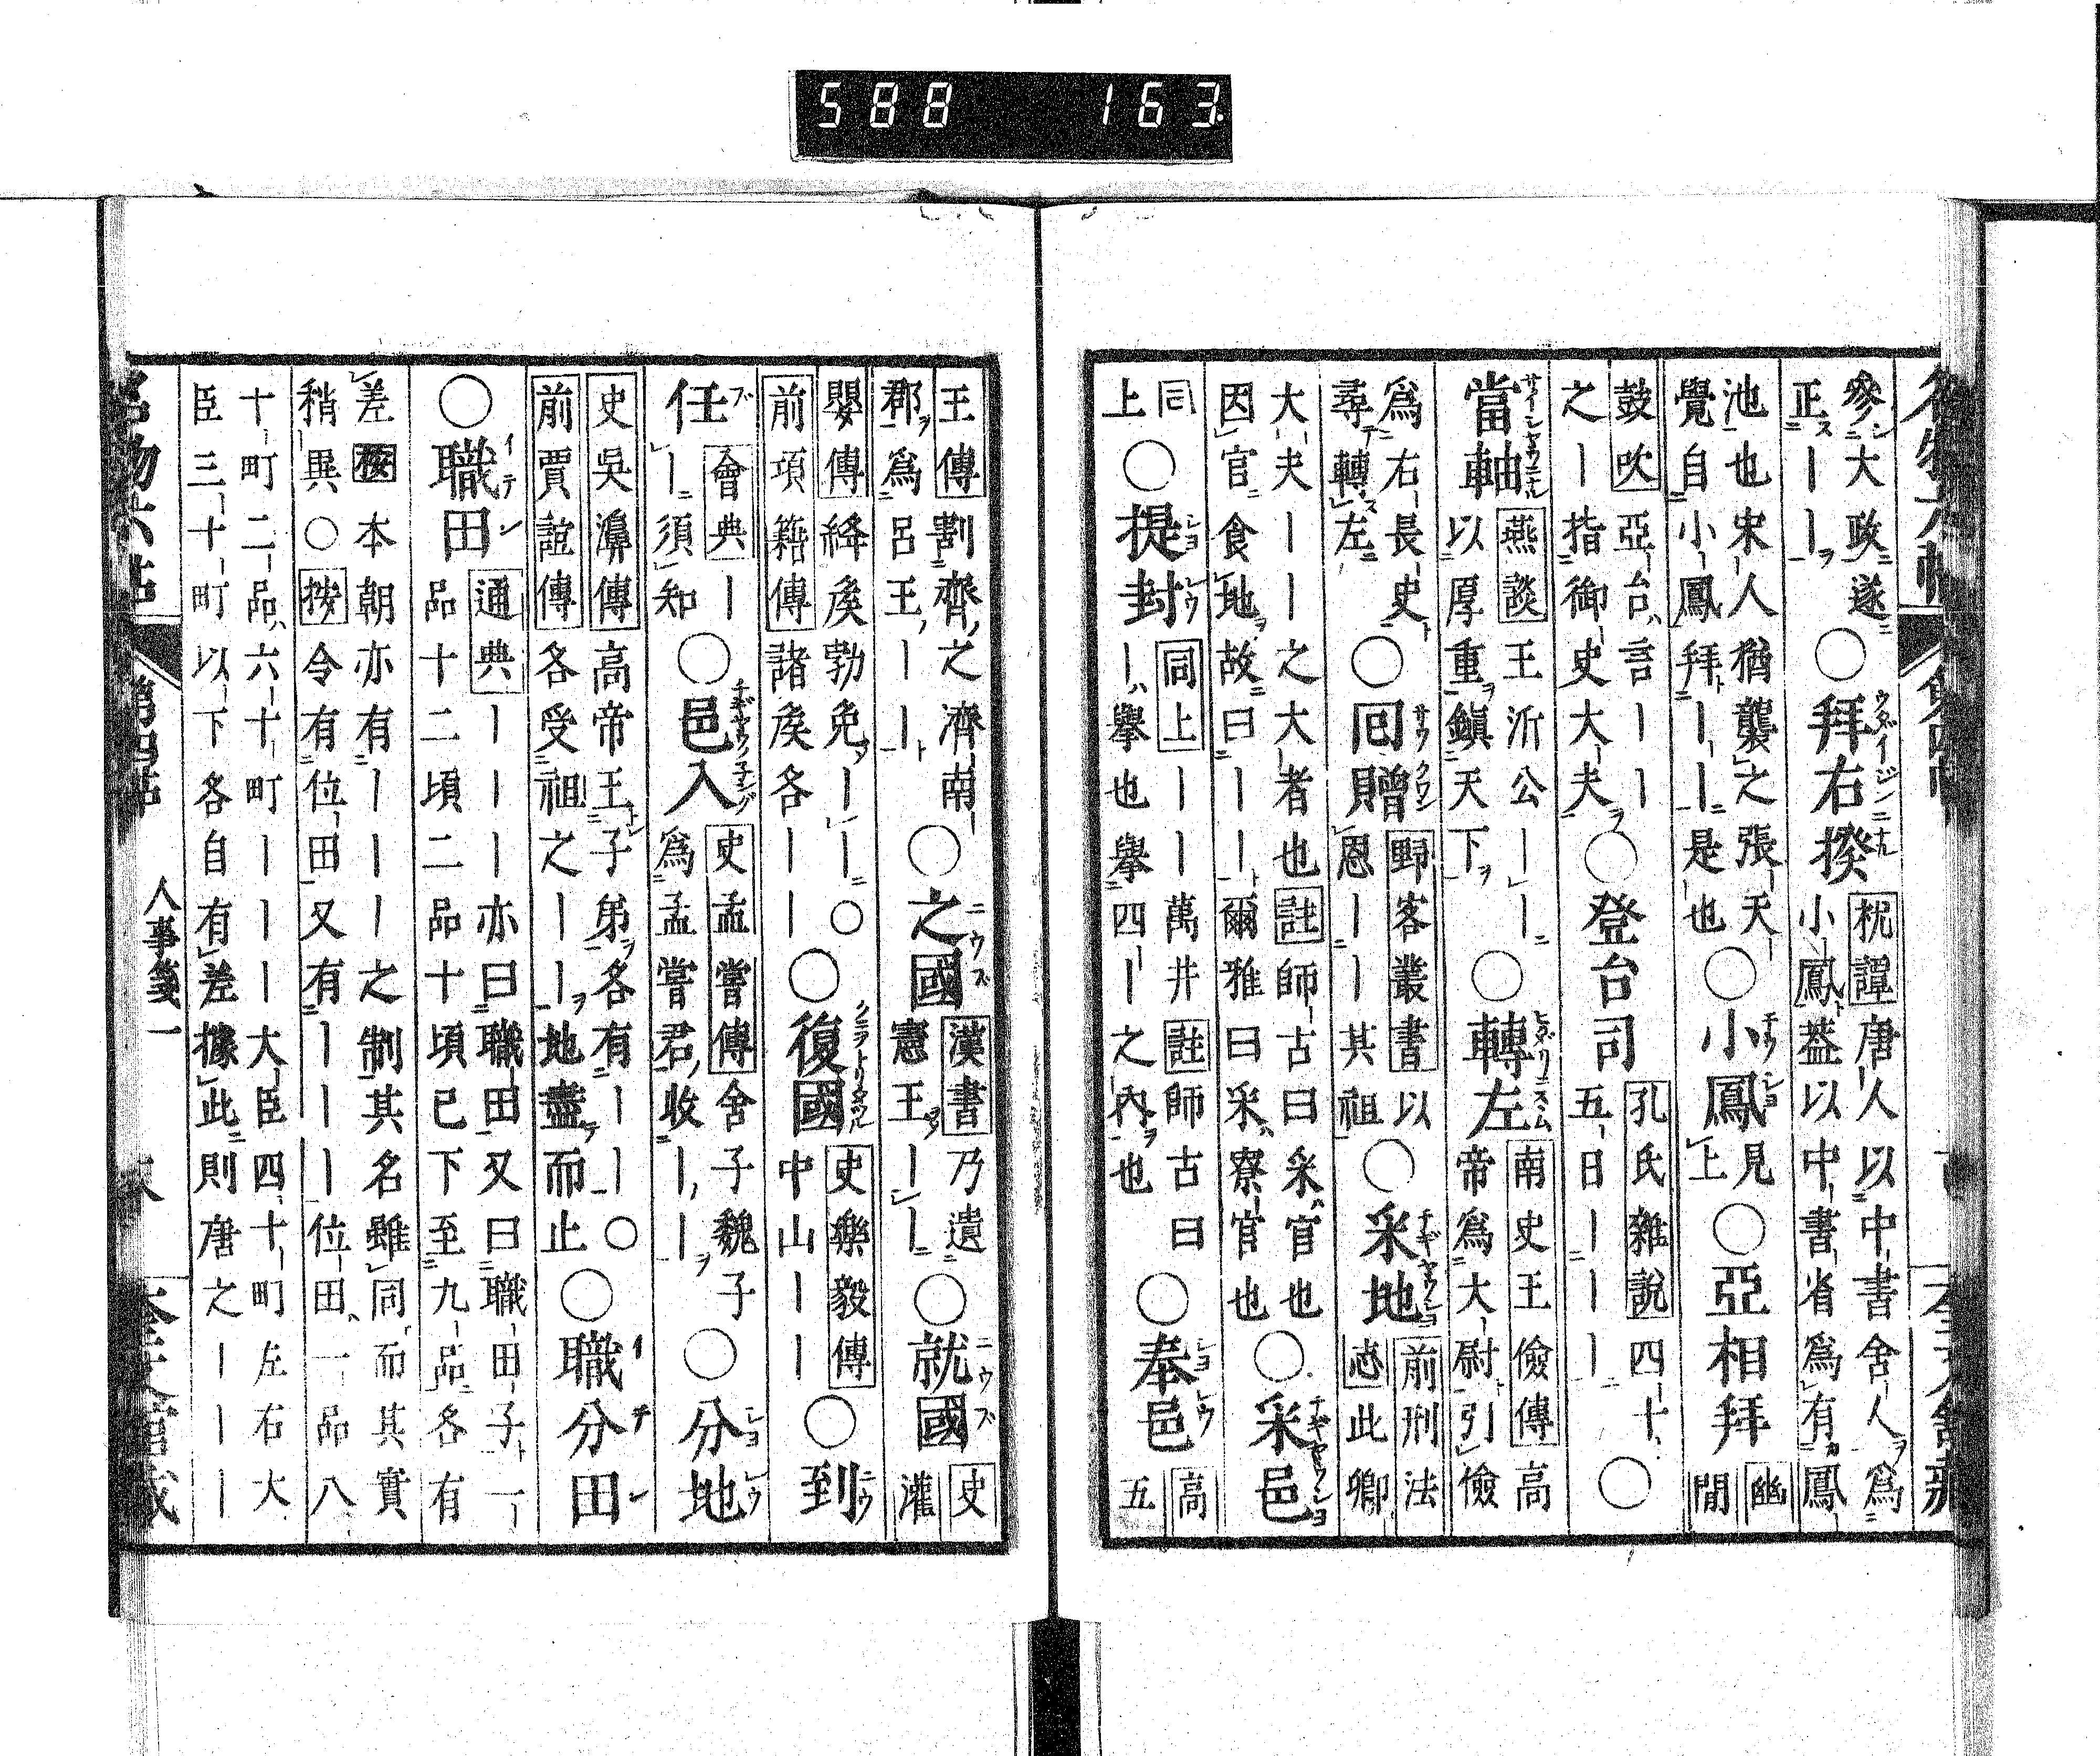 588 163
參大政遂
正スーー
○拜右揆
枕譚唐人以中書舍人爲
小鳳蓋以中書省爲有鳳
池也宋人猶襲之張天
覺自小鳳拜ーー是也
○小鳳
見
上
○亞相拜
幽
閒
鼓吹亞台言ーー
之ー指御史大夫
○登台司
孔氏雜說四十
五日ーーー
○
當軸
燕談王沂公ーー
以厚重鎭天下
○轉左
南史王儉傳高
帝爲大尉引儉
爲右長史
尋轉左
○回贈
野客叢書以
恩ーー其祖
○采地
前刑法
志此卿
大夫ーー之大者也註師古曰采官也
因官食地故曰ーー爾雅曰采寮官也
○采邑
同
上
○提封
同上ーー萬井註師古曰
ー擧也擧四ー之內也
○奉邑
高
五
王傳割齊之濟南
郡爲呂王ーー
○之國
漢書乃遣
憲王ーー
○就國
史
灌
嬰傳絳矦勃免ーー○
前項籍傳諸矦各ーー
○復國
史樂毅傳
中山ーー
○到
任
會典ー
ー須知
○邑入
史孟嘗傳舍子魏子
爲孟嘗君收ーー
○分地
史吳濞傳高帝王子弟各有ーー○
前賈誼傳各受祖之ーー地盡而止
○職分田
○職田
通典ーーー亦曰職田又曰職田子一
品十二頃二品十頃已下至九品各有
差按本朝亦有ーーー之制其名雖同而其實
稍異○按令有位田又有ーーー位田一品八
十町二品六十町ーーー大臣四十町左右大
臣三十町以下各自有差據此則唐之ーーー
第四帖
人事箋一